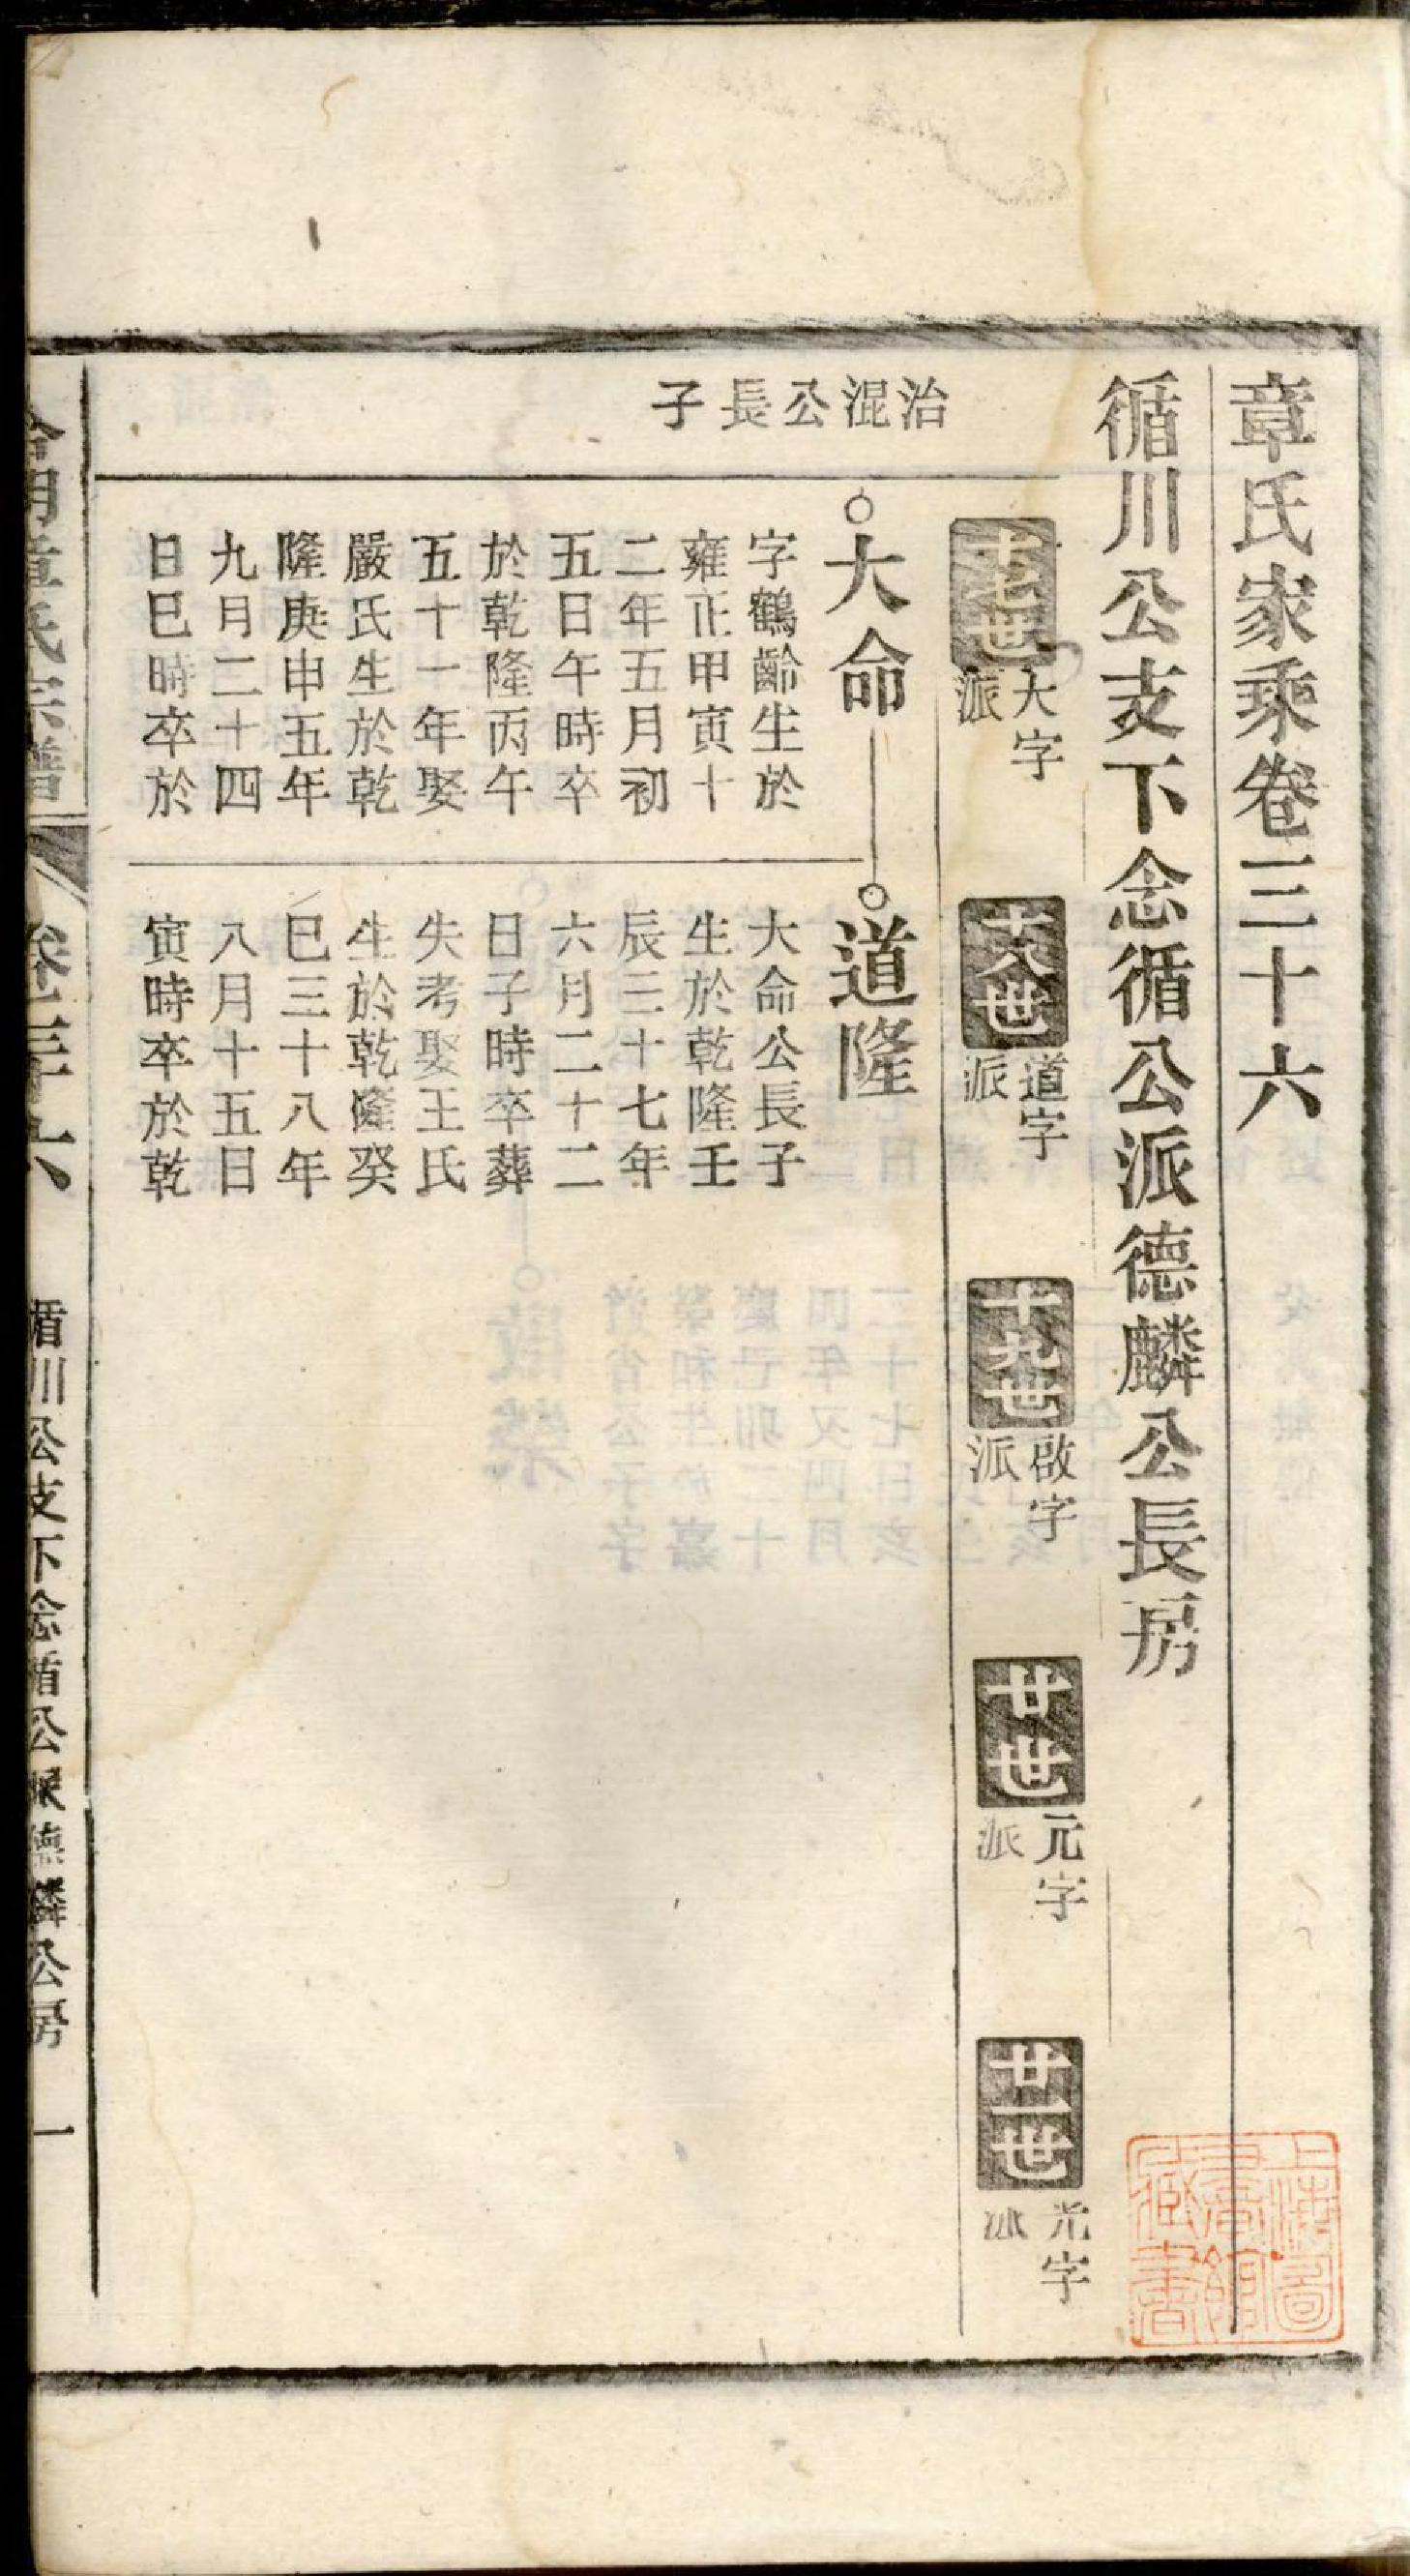 章氏家乘卷三十六
循川公支下念循公派德麟公長房
十七世
大字
派
十八世
道字
派
十九世
啟字
派
廿世
元字
派
廿一世
光字
派
治混公長子
大命
字鶴齡生於
雍正甲寅十
二年五月初
五日午時卒
於乾隆丙午
五十一年娶
嚴氏生於乾
隆庚申五年
九月二十四
日巳時卒於
道隆
大命公長子
生於乾隆壬
辰三十七年
六月二十二
日子時卒葬
失考娶王氏
生於乾隆癸
巳三十八年
八月十五日
寅時卒於乾
章氏宗譜
卷三十六
循川公支下念循公派德麟公房
一
上海圖書館藏書